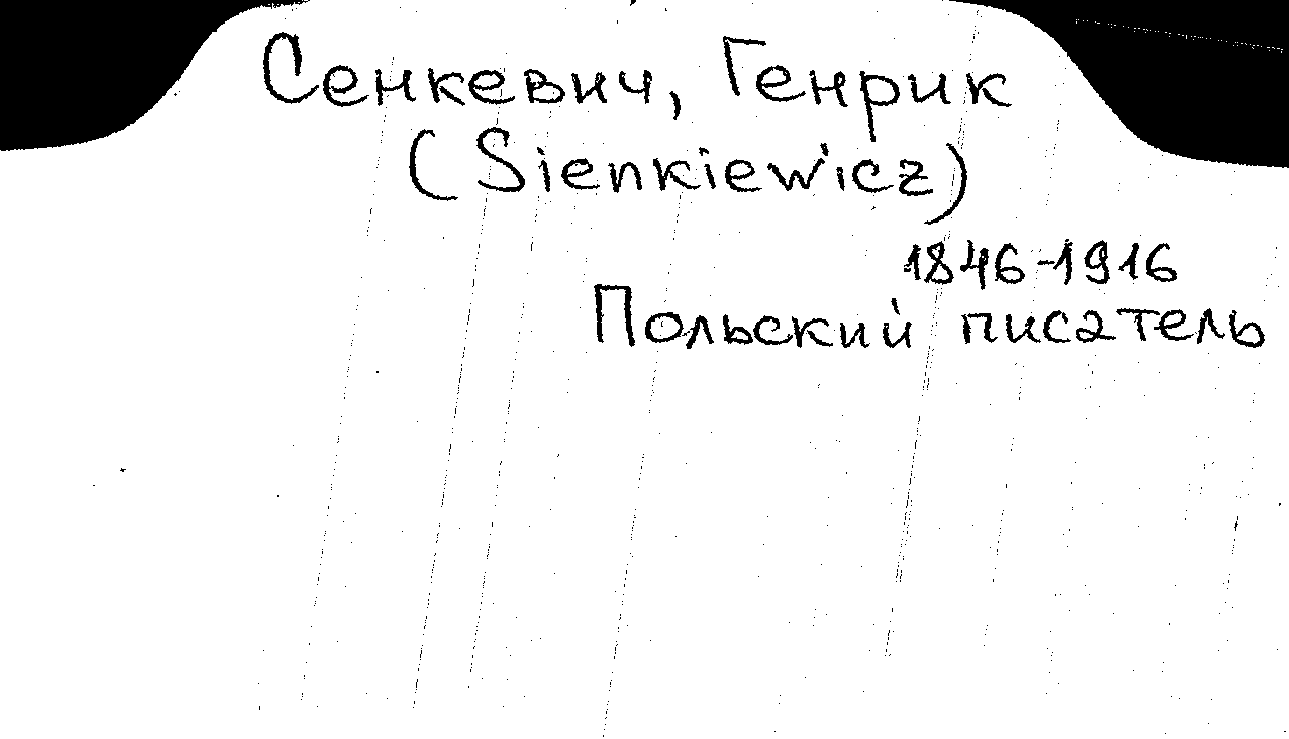 Сенкевич, Генрик
(Sienkiewicz)
1846-1916
Польский писатель